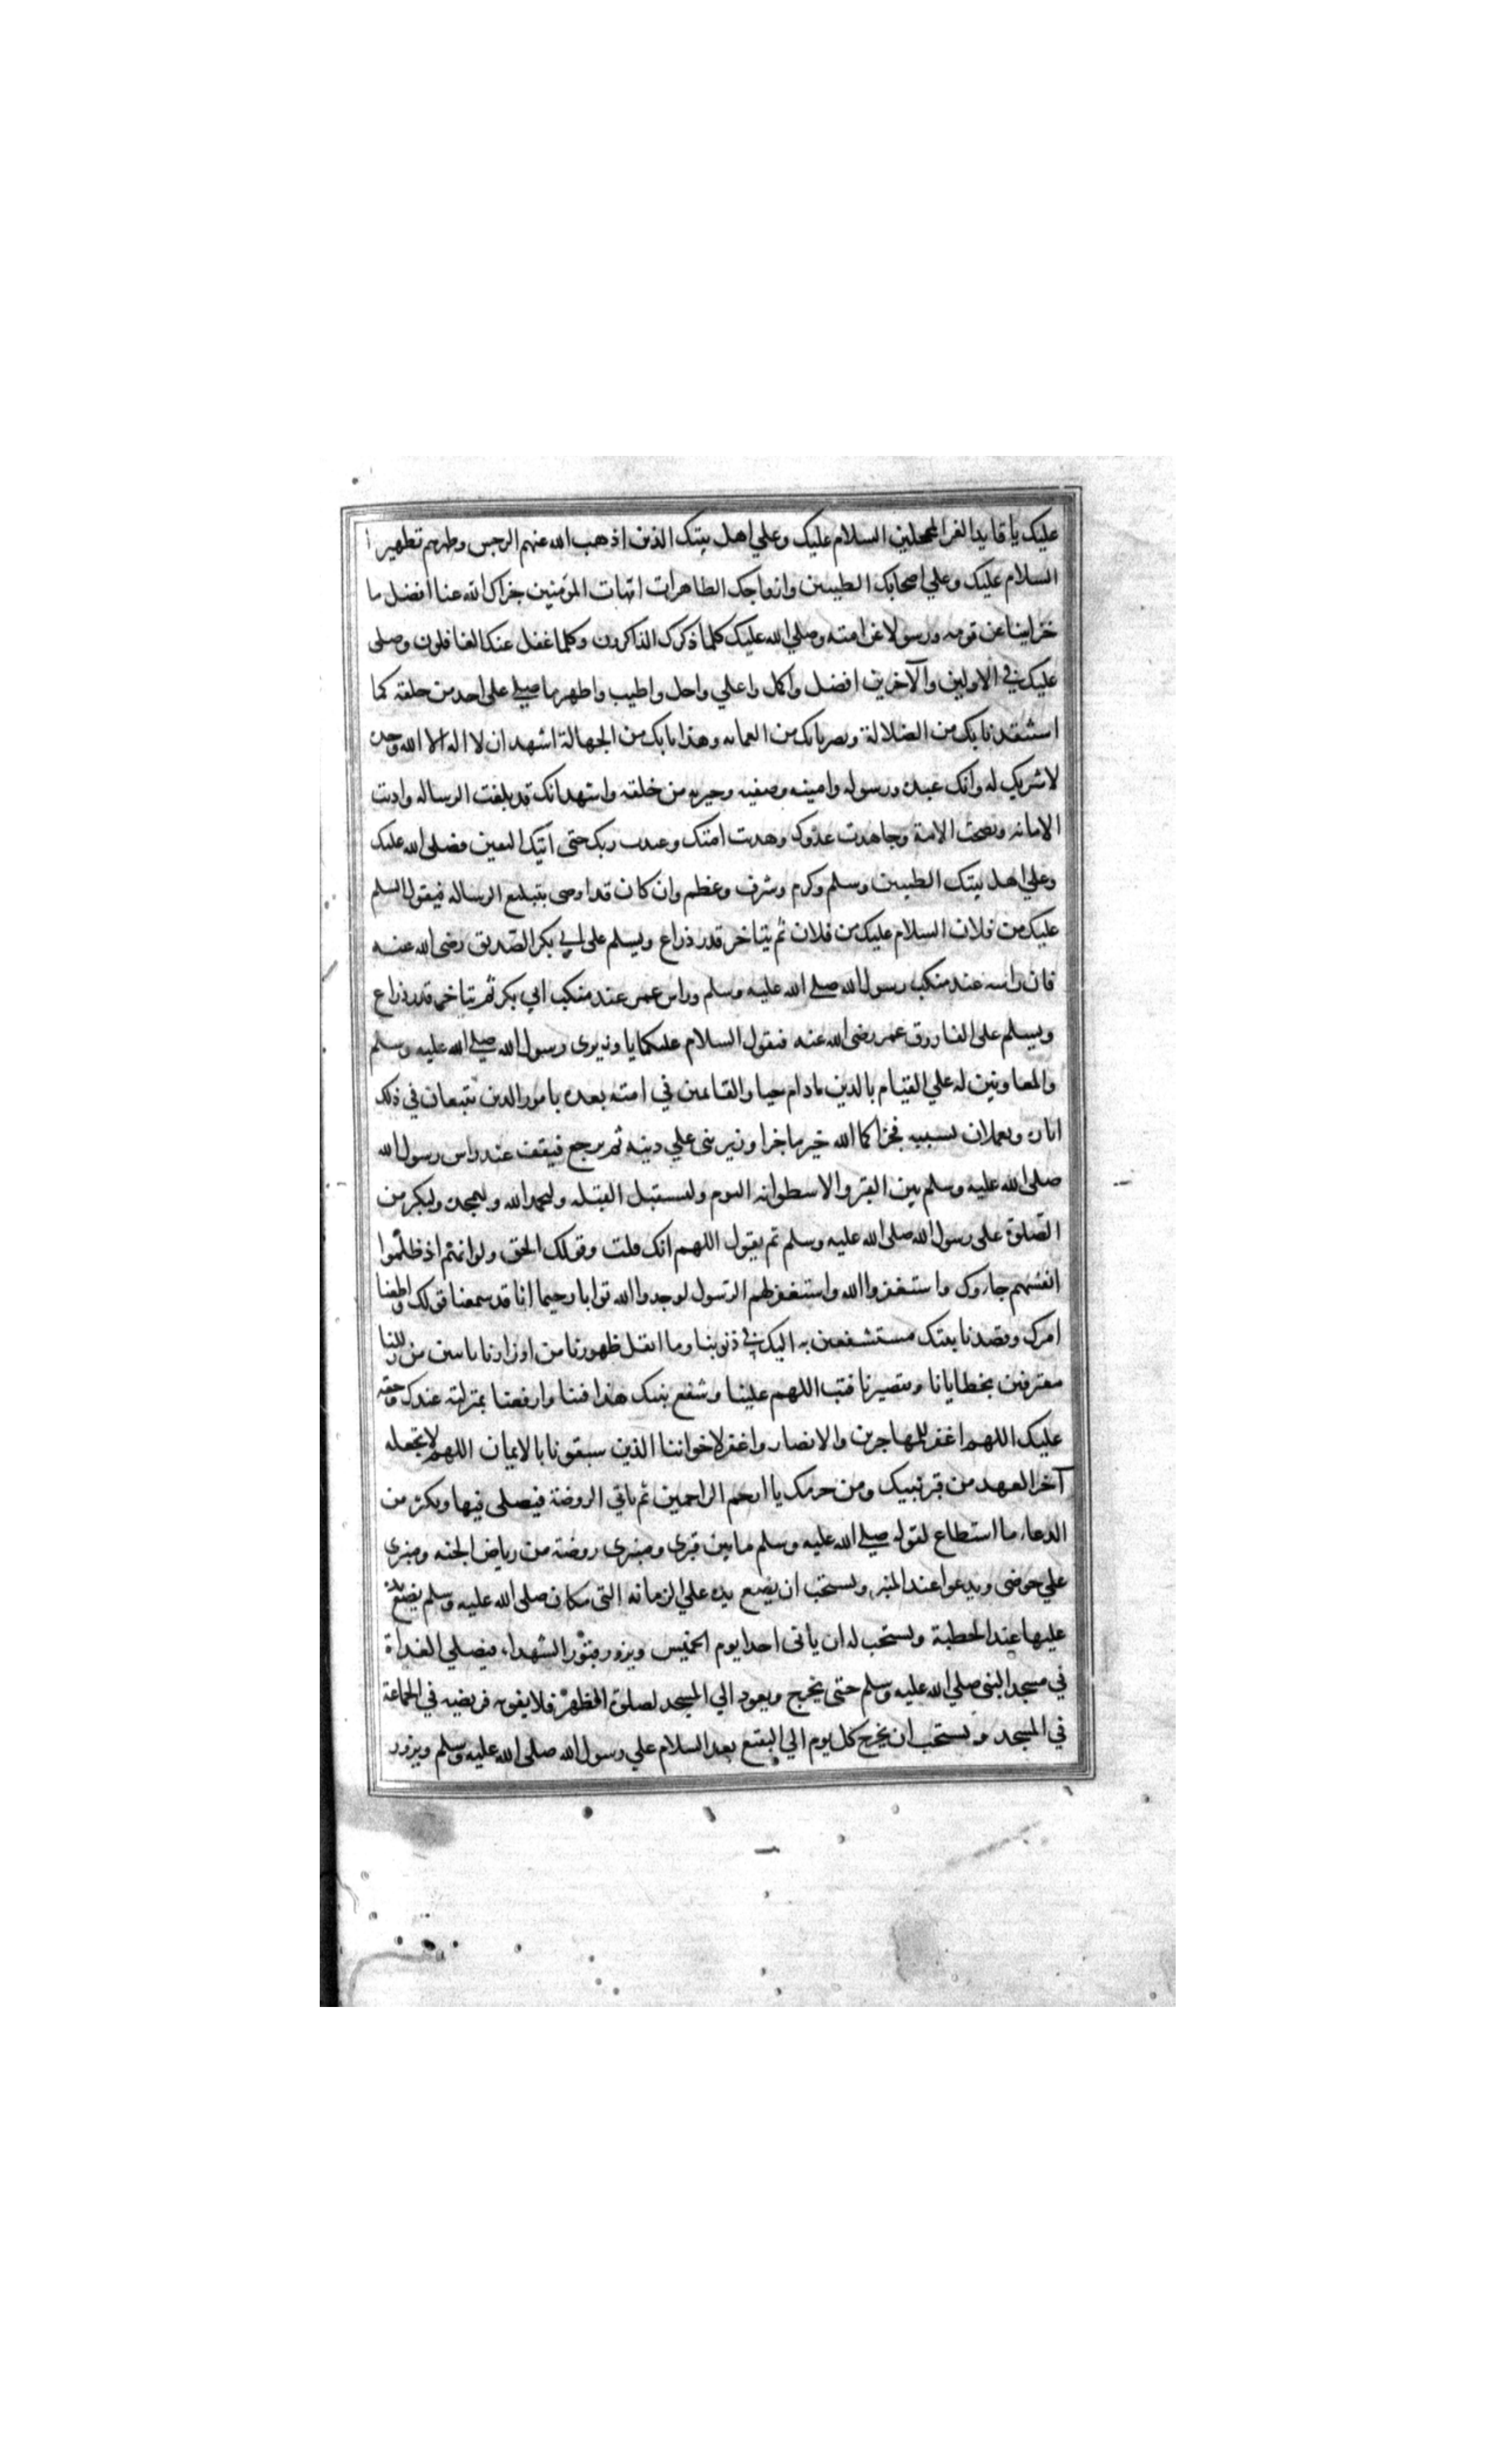 عليك يا قايد الغر المحجلين السلام عليك وعلي اهل بيتك الذين اذهب الله عنهم الرجس وطهرهم تطهيرا
السلام عليك وعلي اصحابك الطيبين وازواجك الطاهرات امهات المؤمنين جزاك الله عنا افضل ما
جزا نبيا عن قومه ورسولا عن امته وصلي الله عليك كلما ذكرك الذاكرون وكلما غفل عنك الغافلون وصلى
عليك في الاولين والآخرين افضل واكمل واعلي واجل واطيب واطهر ما صلي على احد من خلقه كما
استنقذنا بك من الضلالة وبصرنا بك من العمايه وهدانا بك من الجهالة اشهد ان لا اله الا الله وحده
لا شريك له وانك عبده ورسوله وامينه وصفيه وخيرته من خلقه واشهد انك قد بلغت الرساله واديت
الامانه ونصحت الامة وجاهدت عدوك وهديت امتك وعبدت ربك حتى اتيك اليقين فصلى الله عليك
وعلي اهل بيتك الطيبين وسلم وكرم وشرف وعظم وان كان قد اوصى بتبليغ الرساله فيقول السلم
عليك من فلان السلام عليك من فلان ثم يتاخر قدر ذراع ويسلم على ابي بكر الصديق رضى الله عنه
فان راسه عند منكب رسول الله صلي الله عليه وسلم وراس عمر عند منكب ابي بكر ثم يتاخر قدر ذراع
ويسلم على الفاروق عمر رضى الله عنه فيقول السلام عليكما يا وزيرى رسول الله صلي الله عليه وسلم
والمعاونين له علي القيام بالدين مادام حيا والقائمين في امته بعده بامور الدين تتبعان في ذلك
اثاره وتعملان بسببه فجزاكما الله خير ما جزا وزيرنبى علي دينه ثم يرجع فيقف عند راس رسول الله
صلى الله عليه وسلم بين القبر والاسطوانه اليوم وليستقبل القبله وليحمد الله وليمجده وليكثر من
الصلوة على رسول الله صلى الله عليه وسلم ثم يقول اللهم انك قلت وقولك الحق ولو انهم اذ ظلموا
انفسهم جاءوك واستغفروا الله واستغفر لهم الرسول لوجدوا الله توابا رحيما انا قد سمعنا قولك واطعنا
امرك وقصدنا نبيك مستشفعين به اليك في ذنوبنا وما اثقل ظهورنا من اوزارنا تائبين من زللنا
معترفين بخطايانا وتقصيرنا فتب اللهم علينا وشفع نبيك هذا فينا وارفعنا بمنزلته عندك وحقه
عليك اللهم اغفر للمهاجرين والانصار واغفر لاخواننا الذين سبقونا بالايمان اللهم لا تجعله
آخر العهد من قبر نبيك ومن حرمك يا ارحم الراحمين ثم ياتي الروضة فيصلى فيها ويكثر من
الدعاء ما استطاع لقوله صلي الله عليه وسلم مابين قبرى ومنبرى روضة من رياض الجنه ومنبرى
علي حوضى ويدعوا عند المنبر ويستحب ان يضع يده علي الرمانه التى كان صلى الله عليه وسلم يضع يده
عليها عند الخطبة ويستحب له ان ياتى احدا يوم الخميس ويزور قبور الشهداء فيصلي الغداة
في مسجد النبى صلي الله عليه وسلم حتى يخرج ويعود الي المسجد لصلوة الظهر فلا يفوته فريضه في الجماعة
في المسجد ويستحب ان يخرج كل يوم الي البقيع بعد السلام علي رسول الله صلى الله عليه وسلم ويزور